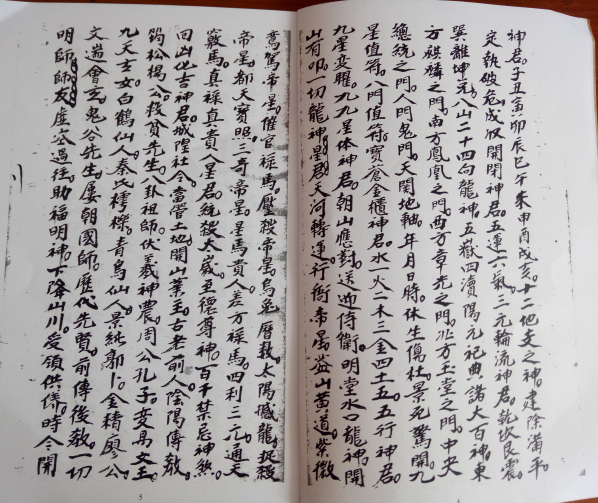 神君。子丑寅卯辰巳午未申酉戌亥。十二地支之神。建除滿平。
定執破危成收開閉神君。五運六氣。三元輪流神君。乾坎艮震。
巽離坤兌。八山二十四向龍神。五嶽四瀆陽元祀典諸大百神。東
方麒麟之門。南方鳳凰之門。西方章光之門。北方玉堂之門。中央
總統之門。人門鬼門。天關地軸。年月日時。休生傷杜景死驚開九
星值符。八門值符。寶倉金櫃神君。水一火二木三金四土五。五行神君。
九星變曜。九九星体神君。朝山應對。送迎侍衛。明堂水口龍神。開
山有叩。一切龍神星君。天河轉運。行衙帝星。蓋山黃道。紫微
4
鸞駕帝星。催官祿馬。壓殺帝星。烏兔曆數。太陽撼龍。捉殺
帝星。都天寶照。三奇帝星。星馬貴人。差方祿馬。四利三元。通天
竅馬。真祿真貴人星君。統殺太歲。至德尊神。百千禁忌神煞。
回凶化吉神君。城隍社令。當管土地。開山業主。古老前人。陰陽傳教。
筠松楊公。救貧先生。八卦祖師。伏羲神農。周公孔子。爻易文王。
九天玄女。白鶴仙人。秦氏樗櫟。青烏仙人。景純郭卜。金精廖公
文會玄。鬼谷先生。屢朝國師。歷代先賢。前傳後教。一切
明師師友。虛空過往。助福明神。下降山川。受領供儀。時今開
5